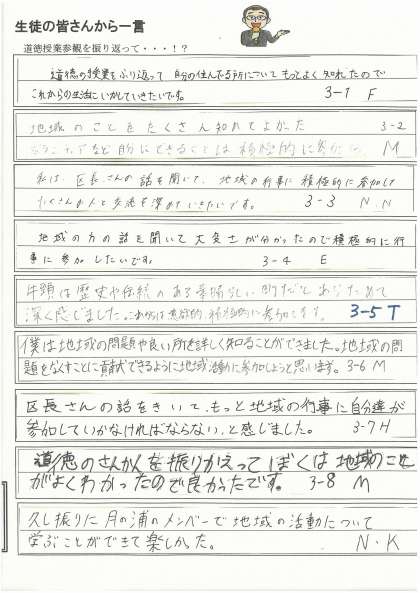 生徒の皆さんから一言
道徳授業参観を振り返って・・・!?
道徳の授業をふり返って 自分の住んでる所についてもってよく知れたので
これからの生活にいかしていきたいです。 3-1 F
地域のことをたくさん知れてよかった 3-2
ボランティアなど自分にできることは積極的に M
私は、区長さんの話を聞いて、地域の行事に積極的に参加して
たくさんの人と交流を深めていきたいです。 3-3 N N
地域の方の話を聞いて大変さが分かったので積極的に行
事に参加したいです。 3-4 E
牛頸は歴史や伝統のある素晴らしい町だとあらためて
深く感じました。これからは意欲的、積極的に参加します。 3-5 T
僕は地域の問題や良い所を詳しく知ることができました。地域の問
題をなくすことに貢献できるように地域活動に参加しようと思います。 3-6 M
区長さんの話をきいて、もっと地域の行事に自分達が
参加していかなければならない、と感じました。 3-7 H
道徳のさんかんを振りかえってぼくは地域のこと
がよくわかったので良かったです。 3-8 M
久し振りに月の浦のメンバーで地域の活動について
学ぶことができて楽しかった。 N・K